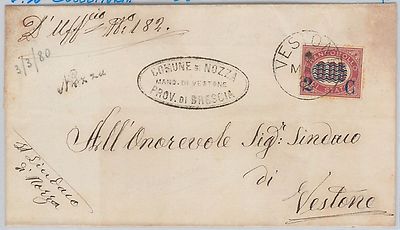 D'Uffcio No. 182.
3/3/80
Nozza
COMUNE DI NOZZA
MAND. DI VESTONE
PROV. DI BRESCIA
VESTONE
2 C
All'Onorevole Sigr. Sindaco
di
Vestone
Il Sindaco
di Nozza